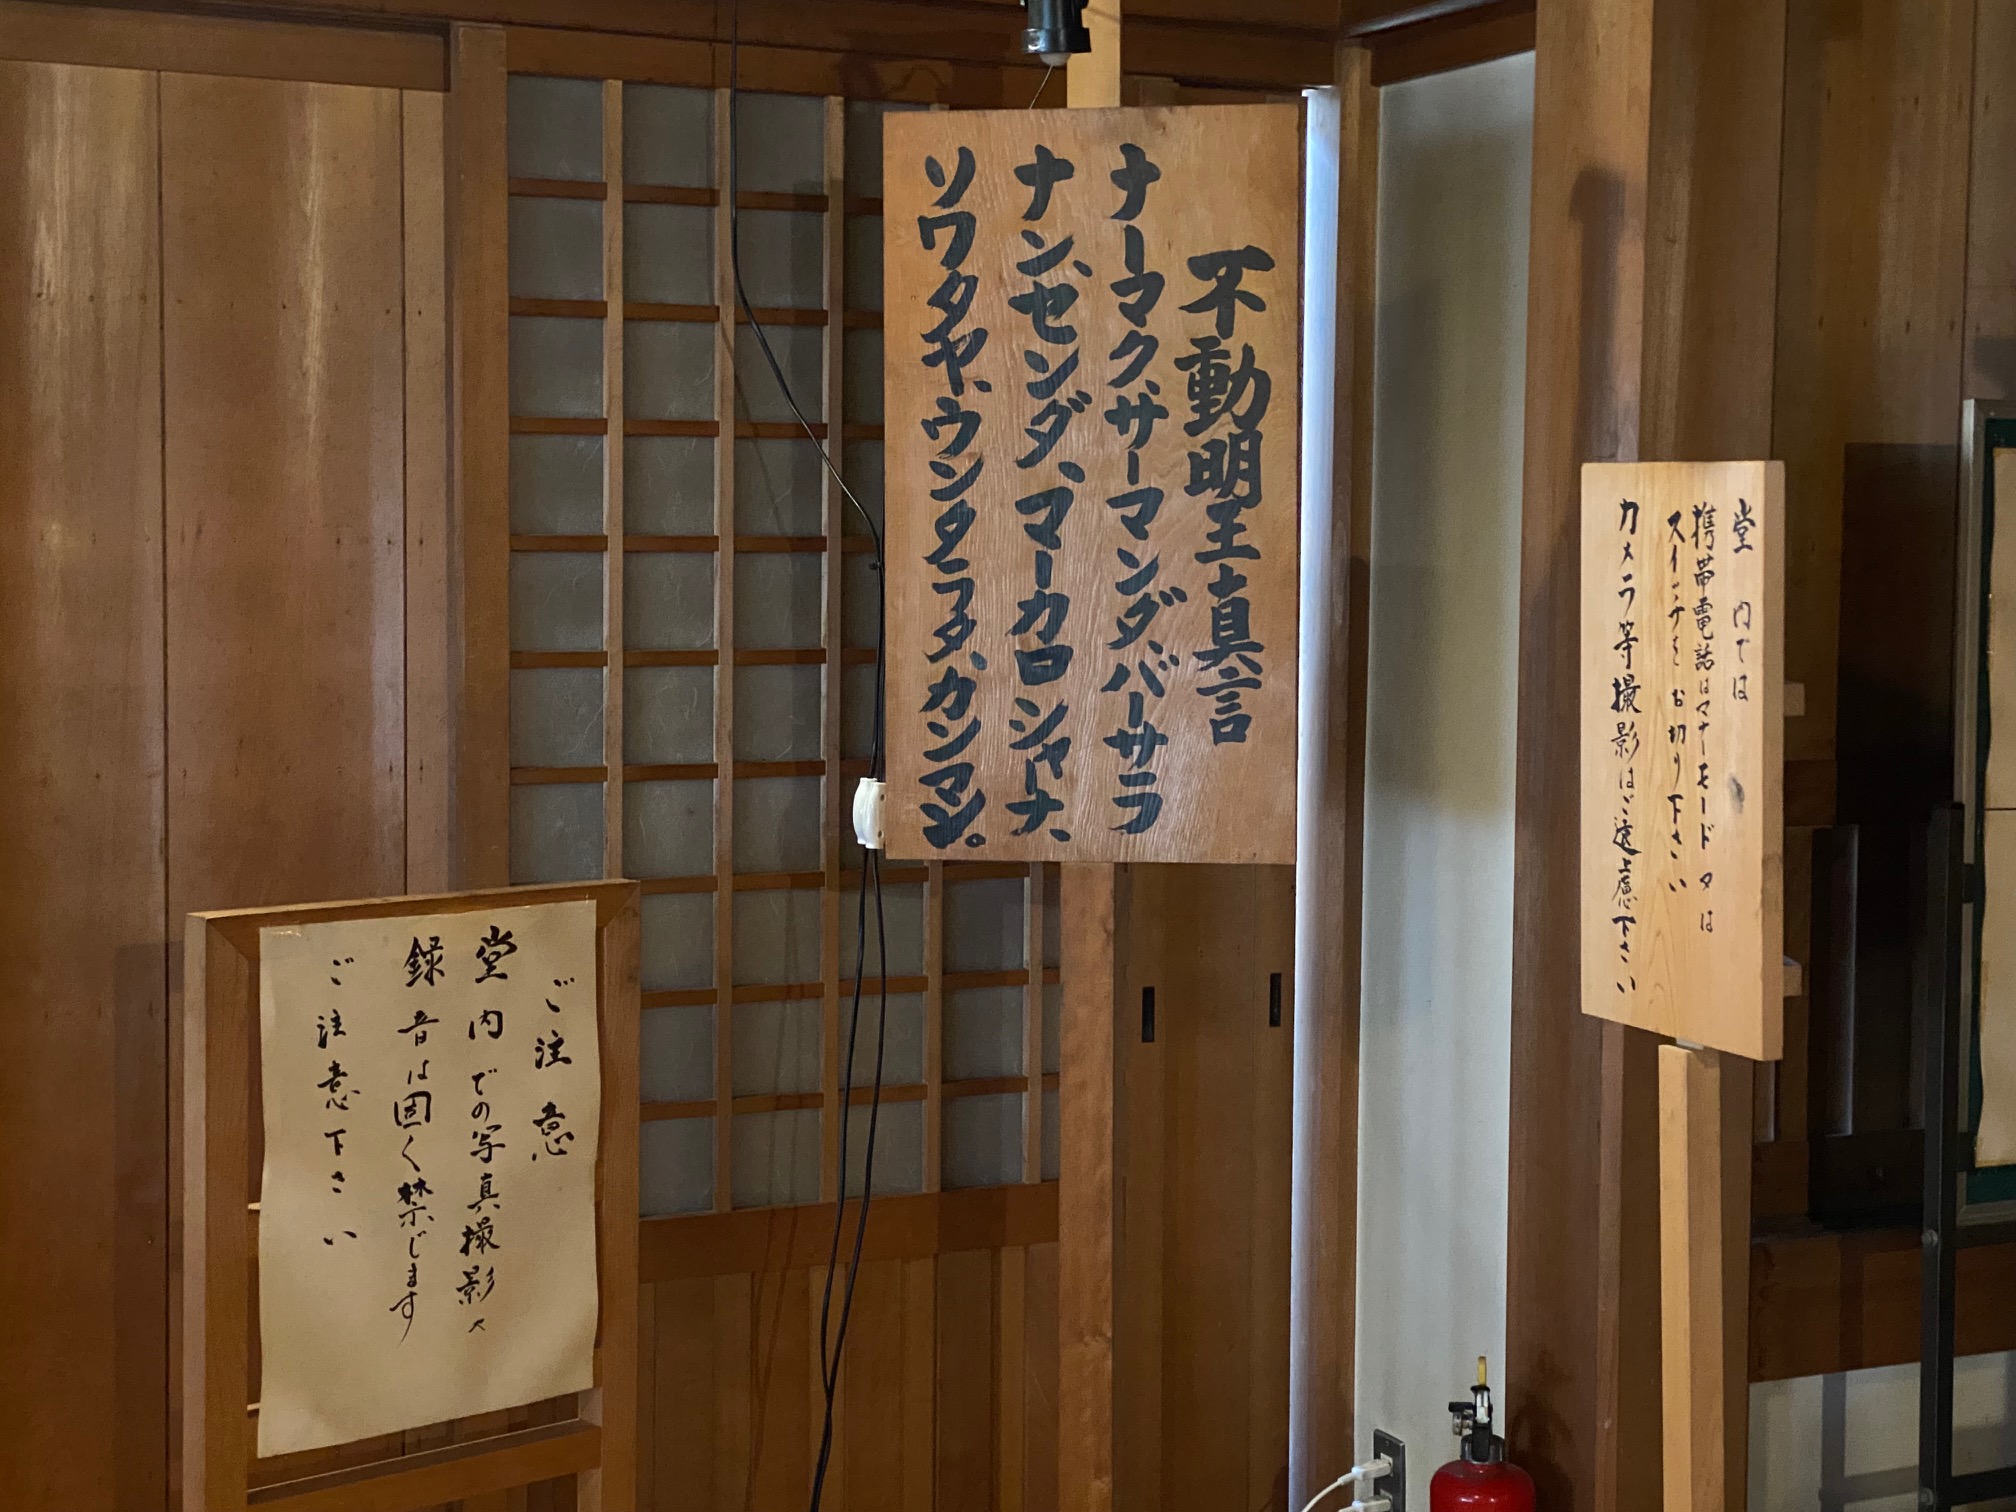 不動明王真言
ナーマク、サーマンダ、バーサラ
ナン、センダ、マーカロシャーナ、
ソワタヤ、ウンタラタ、カンマン。
堂 内では
携帯電話はマナーモード又は
スイッチをお切り下さい
カメラ等撮影はご遠慮下さい
ご注意
堂内での写真撮影又
録音は固く禁じます
ご注意下さい